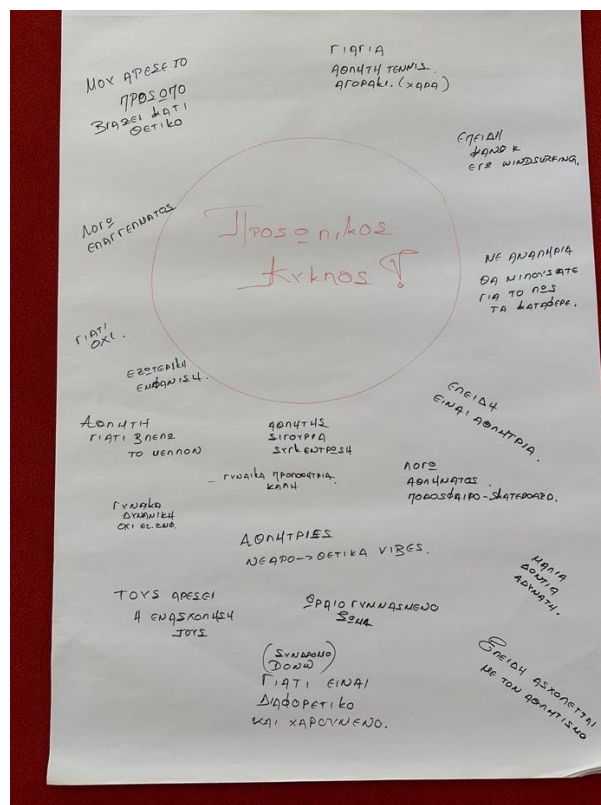 ΜΟΥ ΑΡΕΣΕ ΤΟ
ΠΡΟΣΩΠΟ
ΒΓΑΖΕΙ ΚΑΤΙ
ΘΕΤΙΚΟ
ΓΙΑΓΙΑ
ΑΘΛΗΤΗ ΤΕΝΝΙΣ.
ΑΓΟΡΑΚΙ. (ΧΑΡΑ)
ΕΠΕΙΔΗ
ΚΑΝΩ Κ
ΕΓΩ WINDSURFING.
ΛΟΓΩ
ΕΠΑΓΓΕΛΜΑΤΟΣ
Προσωπικος
Κυκλος
ΜΕ ΑΝΑΠΗΡΙΑ
ΘΑ ΜΙΛΟΥΣΑΤΕ
ΓΙΑ ΤΟ ΠΩΣ
ΤΑ ΚΑΤΑΦΕΡΕ.
ΓΙΑΤΙ
ΟΧΙ.
ΕΞΩΤΕΡΙΚΗ
ΕΜΦΑΝΙΣΗ.
ΕΠΕΙΔΗ
ΕΙΝΑΙ ΑΘΛΗΤΡΙΑ.
ΑΘΛΗΤΗ
ΓΙΑΤΙ ΒΛΕΠΩ
ΤΟ ΜΕΛΛΟΝ
ΑΘΛΗΤΗΣ
ΣΙΓΟΥΡΡΑ
ΣΥΓΚΕΝΤΡΩΣΗ
– ΓΥΝΑΙΚΑ ΠΡΟΠΟΝΗΤΡΙΑ
ΚΑΛΗ
ΛΟΓΩ
ΑΘΛΗΜΑΤΟΣ.
ΠΟΔΟΣΦΑΙΡΟ-SKATEBOARD.
ΓΥΝΑΙΚΑ
ΔΥΝΑΜΙΚΗ
ΟΧΙ ΕΞ. ΕΜΦ.
ΑΘΛΗΤΡΙΕΣ
ΝΕΑΡΟ -> ΘΕΤΙΚΑ VIBES.
ΜΑΛΙΑ
ΔΟΝΤΙΑ
ΑΔΥΝΑΤΗ.
ΤΟΥΣ ΑΡΕΣΕΙ
Η ΕΝΑΣΧΟΛΗΣΗ
ΤΟΥΣ
ΩΡΑΙΟ ΓΥΜΝΑΣΜΕΝΟ
ΣΩΜΑ
(ΣΥΝΔΡΟΜΟ
DOWN)
ΓΙΑΤΙ ΕΙΝΑΙ
ΔΙΑΦΟΡΕΤΙΚΟ
ΚΑΙ ΧΑΡΟΥΜΕΝΟ.
ΕΠΕΙΔΗ ΑΣΧΟΛΕΤΤΑΙ
ΜΕ ΤΟΝ ΑΘΛΗΤΙΣΜΟ